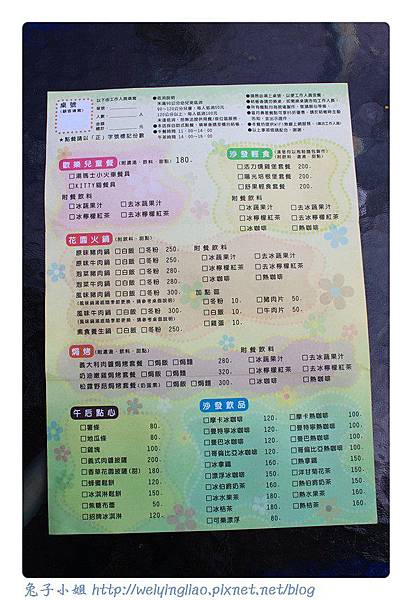 桌號
以下由工作人員填寫
桌號:
人數:
金額:
★點餐請以「正」字號標記份數
●低消說明:
★午餐時間 11:00~14:00
★午茶時間 14:00~16:00
歡樂兒童餐(附濃湯、飲料、甜點) 180.
□湯瑪士小火車餐具
□KITTY貓餐具
附餐飲料
□冰蔬果汁 □去冰蔬果汁
□冰檸檬紅茶 □去冰檸檬紅茶
沙發輕食
□活力燻雞堡套餐 200.
□陽光培根堡套餐 200.
□舒果輕食套餐 200.
附餐飲料
□冰蔬果汁 □去冰蔬果汁
□冰檸檬紅茶 □去冰檸檬紅茶
□冰咖啡 □熱咖啡
花園火鍋(附飲料、甜點)
原味豬肉鍋 □白飯 □冬粉 250.
原味牛肉鍋 □白飯 □冬粉 250.
泡菜豬肉鍋 □白飯 □冬粉 280.
泡菜牛肉鍋 □白飯 □冬粉 280.
風味豬肉鍋 □白飯 □冬粉 300.
風味牛肉鍋 □白飯 □冬粉 300.
素食養生鍋 □白飯 □冬粉 250.
附餐飲料
□冰蔬果汁 □去冰蔬果汁
□冰檸檬紅茶 □去冰檸檬紅茶
□冰咖啡 □熱咖啡
加點區
□冬粉 10. □豬肉片 50.
□白飯 10. □牛肉片 50.
□雞蛋 10.
焗烤(附濃湯、飲料、甜點)
義大利肉醬焗烤套餐 □焗飯 □焗麵 280.
奶油嫩雞焗烤套餐 □焗飯 □焗麵 320.
松露野菇焗烤套餐(奶蛋素) □焗飯 □焗麵 300.
附餐飲料
□冰蔬果汁 □去冰蔬果汁
□冰檸檬紅茶 □去冰檸檬紅茶
□冰咖啡 □熱咖啡
午后點心
□薯條 80.
□地瓜條 80.
□雞塊 100.
□義式肉醬披薩 200.
□香草花園披薩(甜) 180.
□蜂蜜鬆餅 120.
□冰淇淋鬆餅 150.
□焦糖布蕾 50.
□招牌冰淇淋 120.
沙發飲品
□摩卡冰咖啡 120.
□曼特寧冰咖啡 120.
□曼巴冰咖啡 120.
□哥倫比亞冰咖啡 120.
□冰拿鐵 150.
□漂浮冰咖啡 150.
□冰伯爵奶茶 150.
□冰水果茶 160.
□冰桔茶 160.
□可樂漂浮 80.
□摩卡熱咖啡 100.
□曼特寧熱咖啡 100.
□曼巴熱咖啡 100.
□哥倫比亞熱咖啡 100.
□熱拿鐵 150.
□洋甘菊花茶 150.
□熱伯爵奶茶 150.
□熱水果茶 160.
□熱桔茶 160.
兔子小姐 http://weiyingliao.pixnet.net/blog